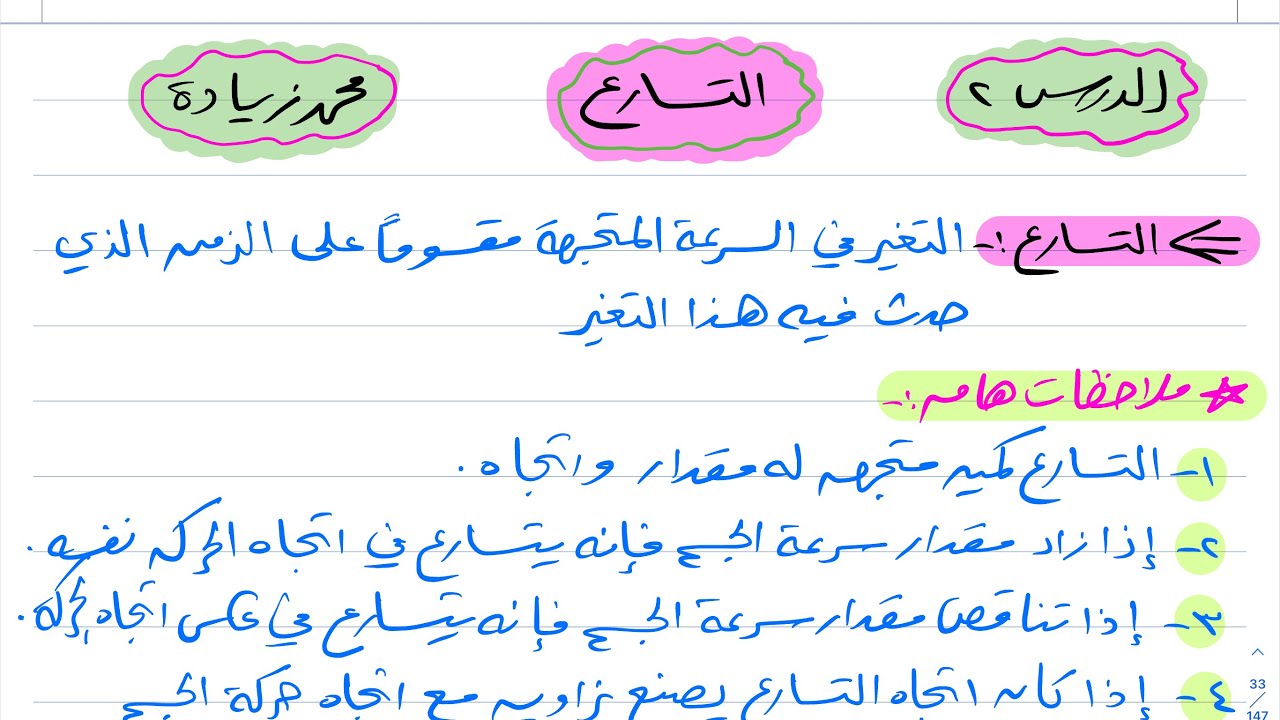 الدرس ٢
التسارع
محمد زيادة
التسارع :- التغير في السرعة المتجهة مقسوماً على الزمن الذي
حدث فيه هذا التغير
ملاحظات هامه :-
١- التسارع كميه متجهه له مقدار واتجاه .
٢- إذا زاد مقدار سرعة الجسم فإنه يتسارع في اتجاه الحركه نفسه .
٣- إذا تناقص مقدار سرعة الجسم فإنه يتسارع في عكس اتجاه الحركه .
٤- إذا كان اتجاه التسارع يصنع زاويه مع اتجاه حركة الجسم
33
147